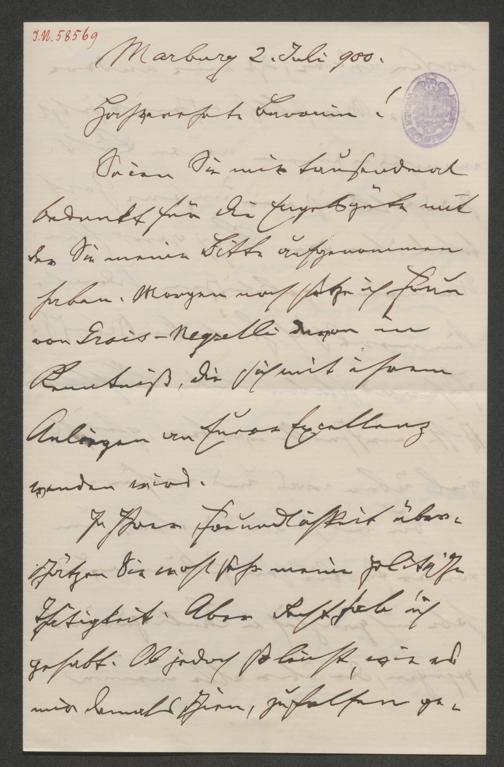 I.N. 58569
Marburg 2. Juli 900.
Hochverehrte Baronin!
Seien Sie mir tausendmal
bedankt für die Engelsgüte mit
der Sie meine Bitte aufgenommen
haben. Morgen noch setze ich Frau
von Grois-Negrelli davon in
Kenntniß, die sich mit ihrem
Anliegen an Eurer Excellenz
wenden wird.
In Ihrer Freundlichkeit über-
schätzen Sie wohl sehr meine politische
Thätigkeit. Aber Recht hab ich
gehabt. Ob jedoch, wie es
mir damals schien, zu helfen ge-